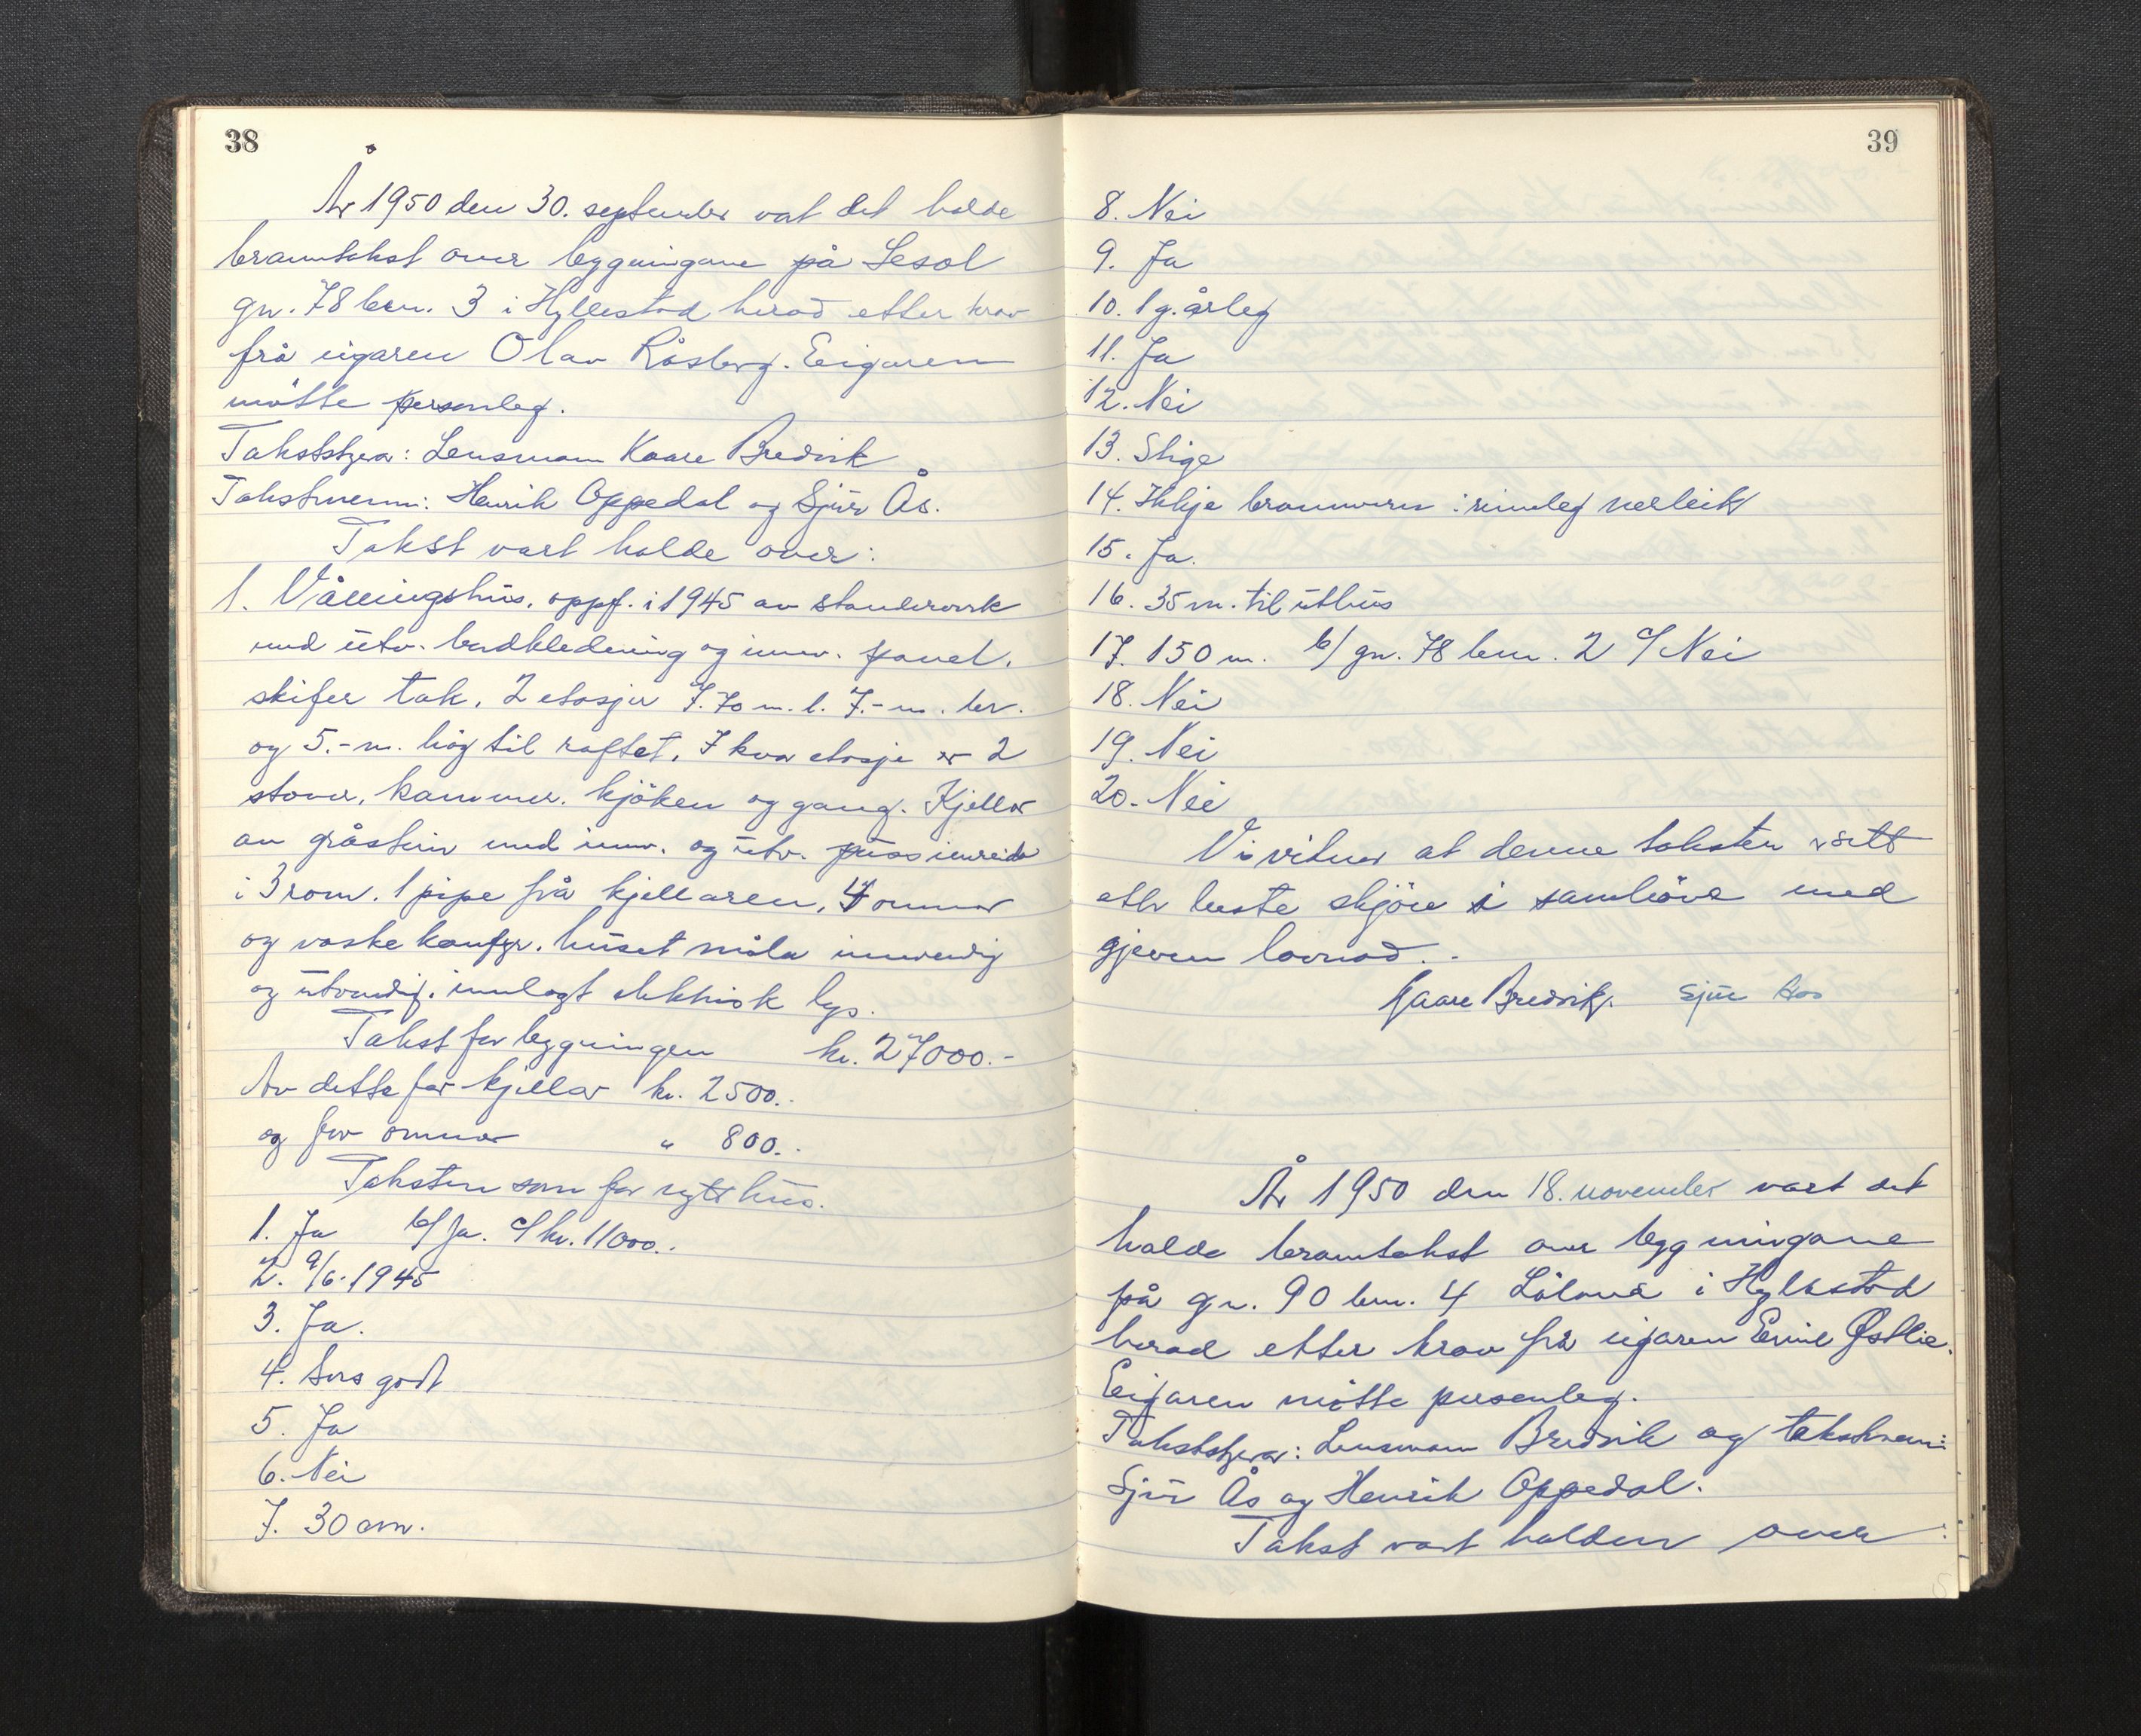 38
År 1950 den 30. september vart det halde
branntakst over bygningane på Lesol
gn. 78 bnr. 3 i Hyllestad herad etter krav
frå eigaren Olav Råsberg. Eigaren
møtte personleg.
Takststyrar: Lensmann Kaare Bredvik
Takstmenn: Henrik Oppedal og Sjur Ås.
Takst vart halde over:
1. Våningshus, oppf. i 1945 av standerverk
med utv. bordkledning og innv. panel,
skifer tak, 2 etasjer 7.70 m. l. 7.- m. br.
og 5.- m. høg til raftet. I kvar etasje er 2
stover, kammer, kjøken og gang. Kjellar
av gråstein med innv. og utv. puss innreida
i 3 rom. 1 pipe frå kjellaren, 4 omnar
og vaske komfyr. huset måla innvendig
og utvendig. innlagt elektrisk lys.
Takst for bygningen kr. 27000.-
Av dette for kjellar kr. 2500.-
og for omnar " 800.-
Taksten som for nytt hus.
1. Ja b/ Ja. c/ kr. 11000.-
2. 9/6-1945
3. Ja.
4. Sers godt
5. Ja
6. Nei
7. 30 cm.
39
8. Nei
9. Ja
10. 1 g. årleg
11. Ja
12. Nei
13. Stige
14. Ikkje brannvern i rimeleg nerleik
15. Ja.
16. 35 m. til uthus
17. 150 m. b/ gn. 78 bnr. 2 c/ Nei
18. Nei
19. Nei
20. Nei
Vi vitnar at denne taksten er sett
etter beste skjøn i samhøve med
gjeven lovnad. -
Kaare Bredvik. Sjur Aas
År 1950 den 18. november vart det
halde branntakst over bygningane
på gn. 90 bnr. 4 i Hyllestad
herad etter krav frå eigaren Emil Østlie.
Eigaren møtte personleg.
Takststyrar: Lensmann Bredvik og takstmenn:
Sjur Ås og Henrik Oppedal.
Takst vart halden over: